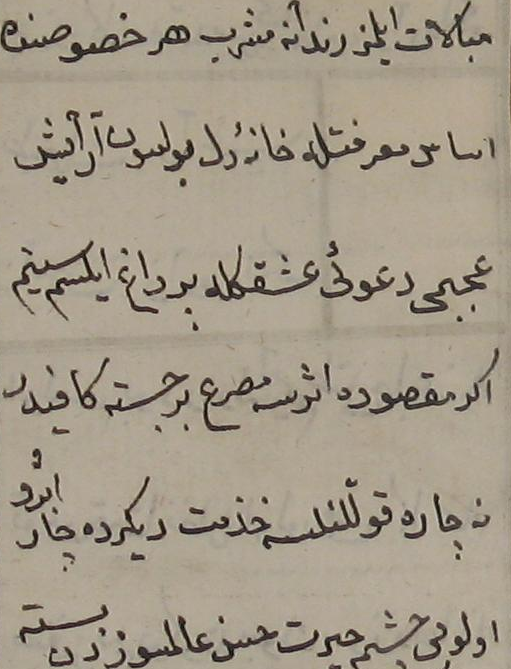 مبالات ایلمز رندانه مشرب هر خصوصنده
اساس معرفتله خانۀ دل بولسون آرایش
عجبمی دعوئ عشقكله بر داغ ایلسم سینم
اكر مقصوده اثرسه مصرع برجسته كافیدر
نه چاره قوللنلسه خذمت دیكرده چار ابرو
اولورمی چشم حیرت حسن عالمسوزدن بسته